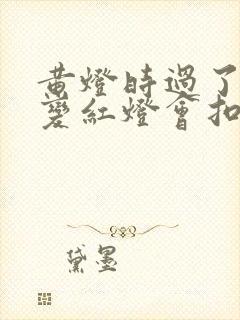 黄燈時過了
變紅燈會扣
黛墨